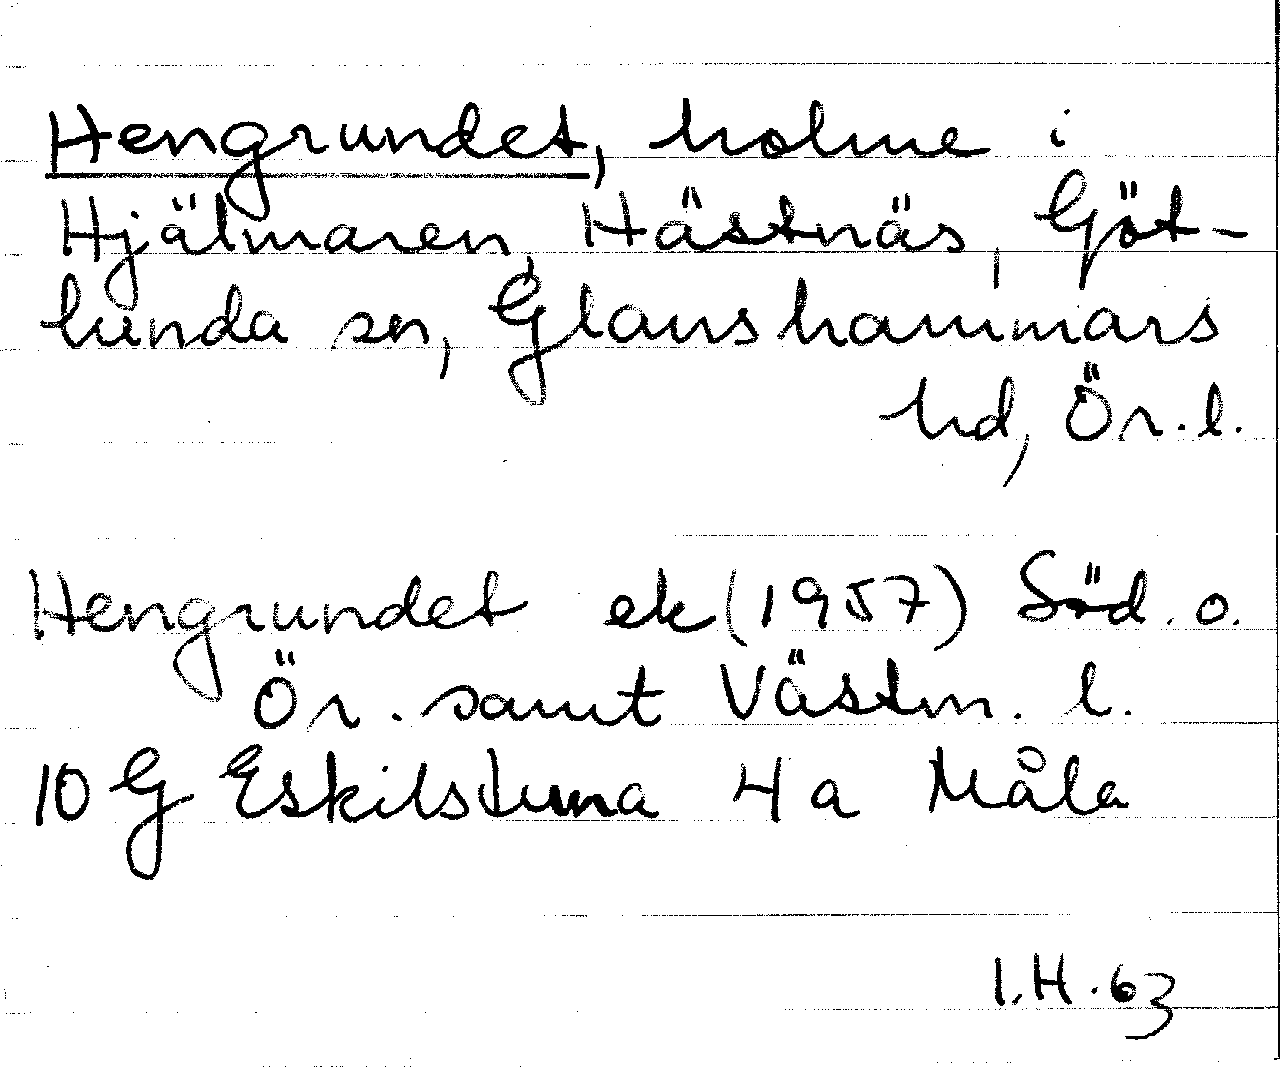 Hengrundet, holme i
Hjälmaren, Hästnäs, Göt-
lunda sn, Glanshammars
hd, Ör. l.
Hengrundet ek (1957) Söd. o.
Ör. samt Västm. l.
10 G Eskilstuna 4a Måla
I.H. 63